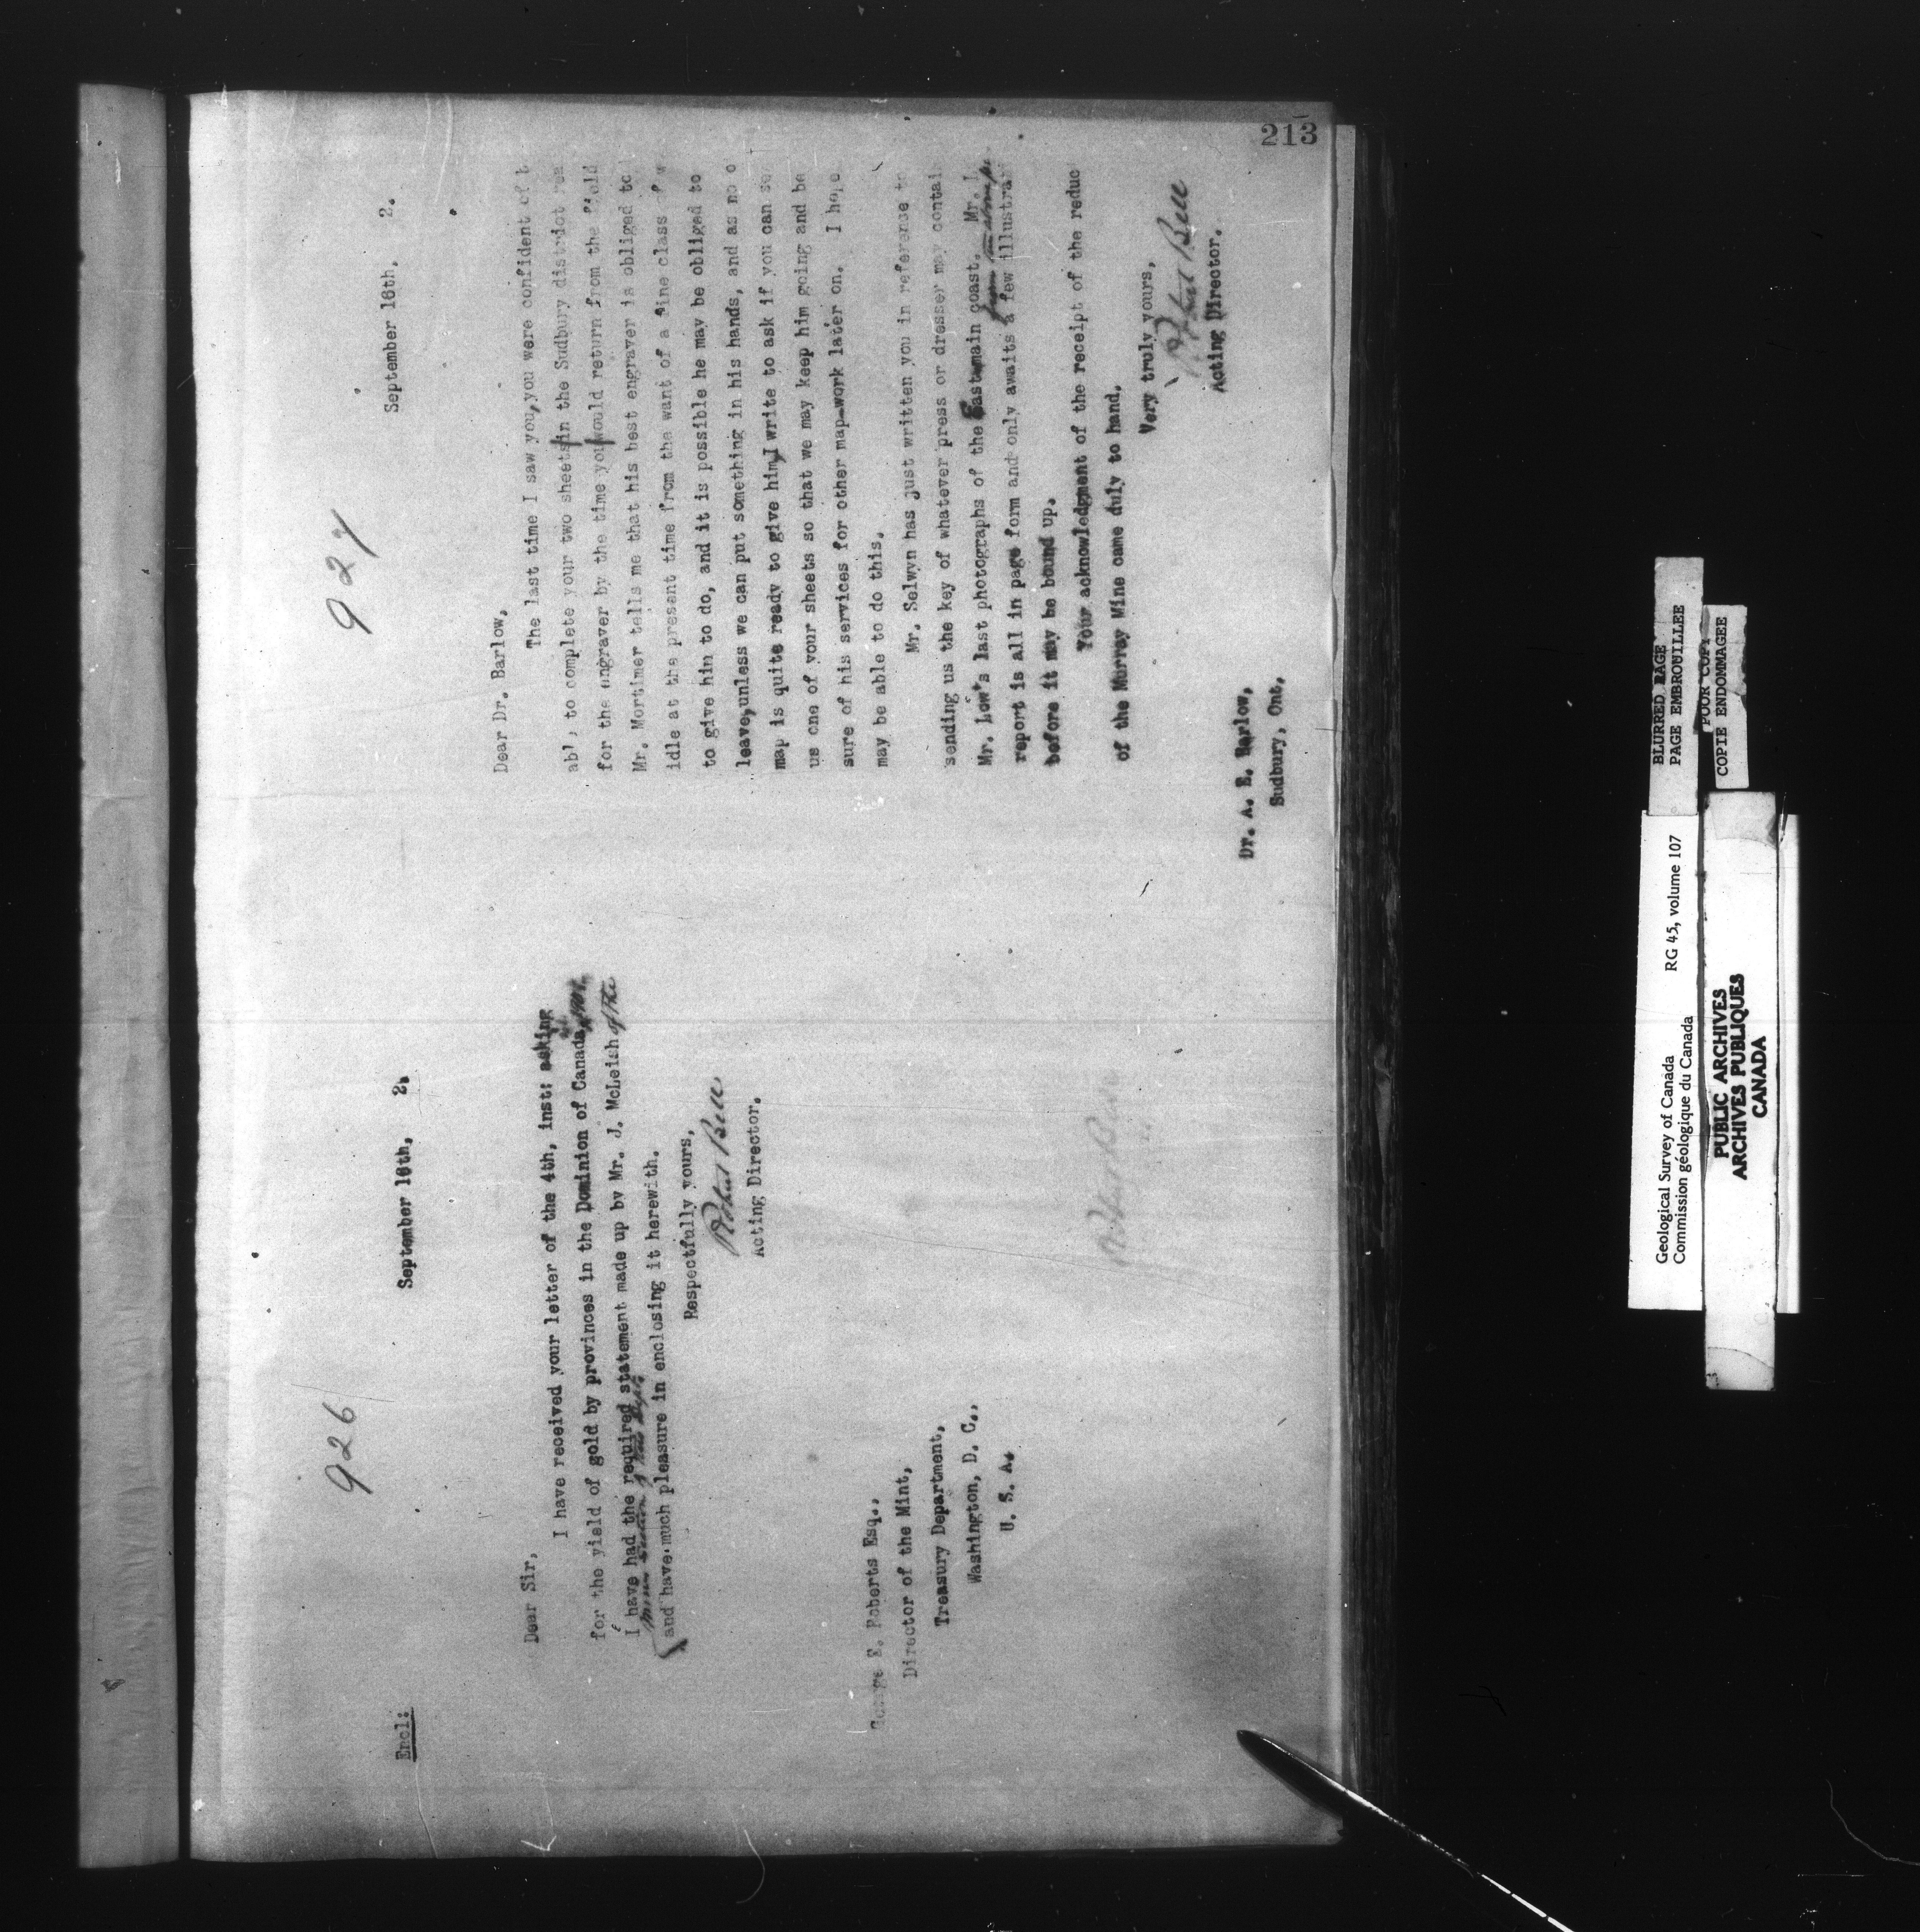 213
926
Encl:
September 16th, 2.
Dear Sir,
I have received your letter of the 4th, inst: asking
for the yield of gold by provinces in the Dominion of Canada
I have had the required statement made up by Mr. J. McLeish of the
and have much pleasure in enclosing it herewith.
Respectfully yours,
Robert Bell
Acting Director.
George E. Roberts Esq.,
Director of the Mint,
Treasury Department,
Washington, D. C.,
U. S. A.
Robert Bell
927
September 16th, 2.
Dear Dr. Barlow,
The last time I saw you, you were confident of
able to complete your two sheets in the Sudbury district
for the engraver by the time you would return from the field
Mr. Mortimer tells me that his best engraver is obliged to
idle at the present time from the want of a fine class of
to give him to do, and it is possible he may be obliged to
leave, unless we can put something in his hands, and as no
map is quite ready to give him, I write to ask if you can
us one of your sheets so that we may keep him going and be
sure of his services for other map-work later on. I hope
may be able to do this.
Mr. Selwyn has just written you in reference to
sending us the key of whatever press or dresser may contain
Mr. Low's last photographs of the Eastmain coast. Mr.
report is all in page form and only awaits a few
before it may be bound up.
Your acknowledgment of the receipt of the
of the Murray Mine came duly to hand.
Very truly yours,
Robert Bell
Acting Director.
Dr. A. E. Barlow,
Sudbury, Ont.
BLURRED PAGE
PAGE EMBROUILLEE
POOR COPY
COPIE ENDOMMAGEE
Geological Survey of Canada RG 45, volume 107
Commission géologique du Canada
PUBLIC ARCHIVES
ARCHIVES PUBLIQUES
CANADA